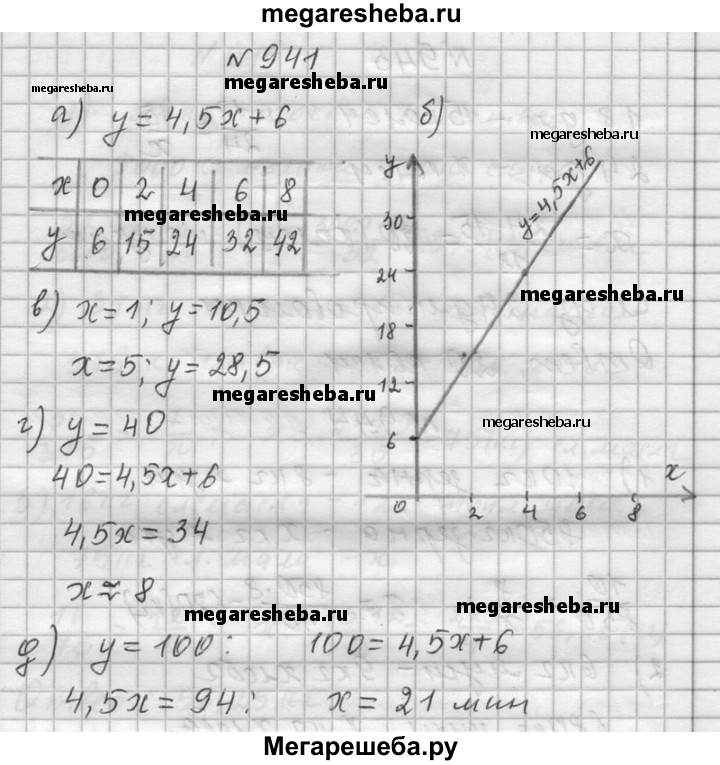 megaresheba.ru
№ 941
megaresheba.ru
megaresheba.ru
а) y = 4,5x + 6
x 0 2 4 6 8
megaresheba.ru
y 6 15 24 32 42
в) x = 1; y = 10,5
x = 5; y = 28,5
megaresheba.ru
г) y = 40
40 = 4,5x + 6
4,5x = 34
x ≈ 8
megaresheba.ru
б)
megaresheba.ru
y
y = 4,5x + 6
30
24
megaresheba.ru
18
12
megaresheba.ru
6
x
0 2 4 6 8
megaresheba.ru
д) y = 100: 100 = 4,5x + 6
4,5x = 94: x = 21 мин
Мегарешеба.ру